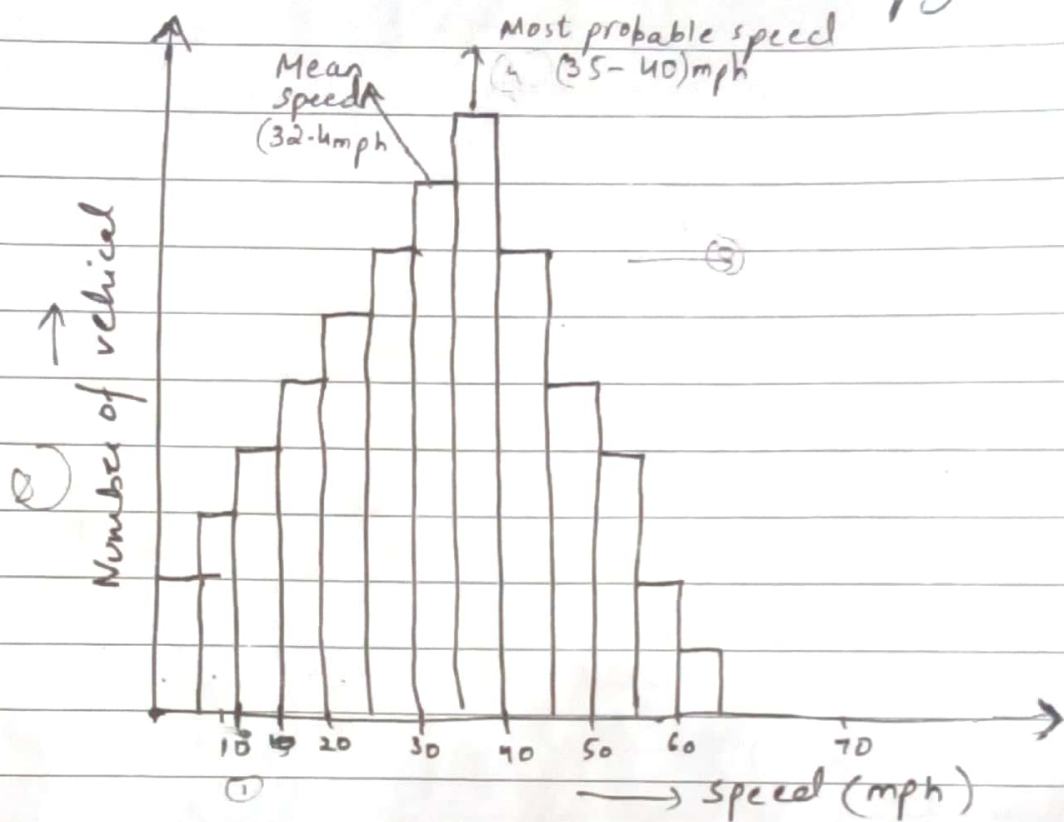 Most probable speed
(35-40)mph
Mean
speed
(32.4mph
Number of vehical
10 15 20 30 40 50 60 70
speed (mph)
①
③